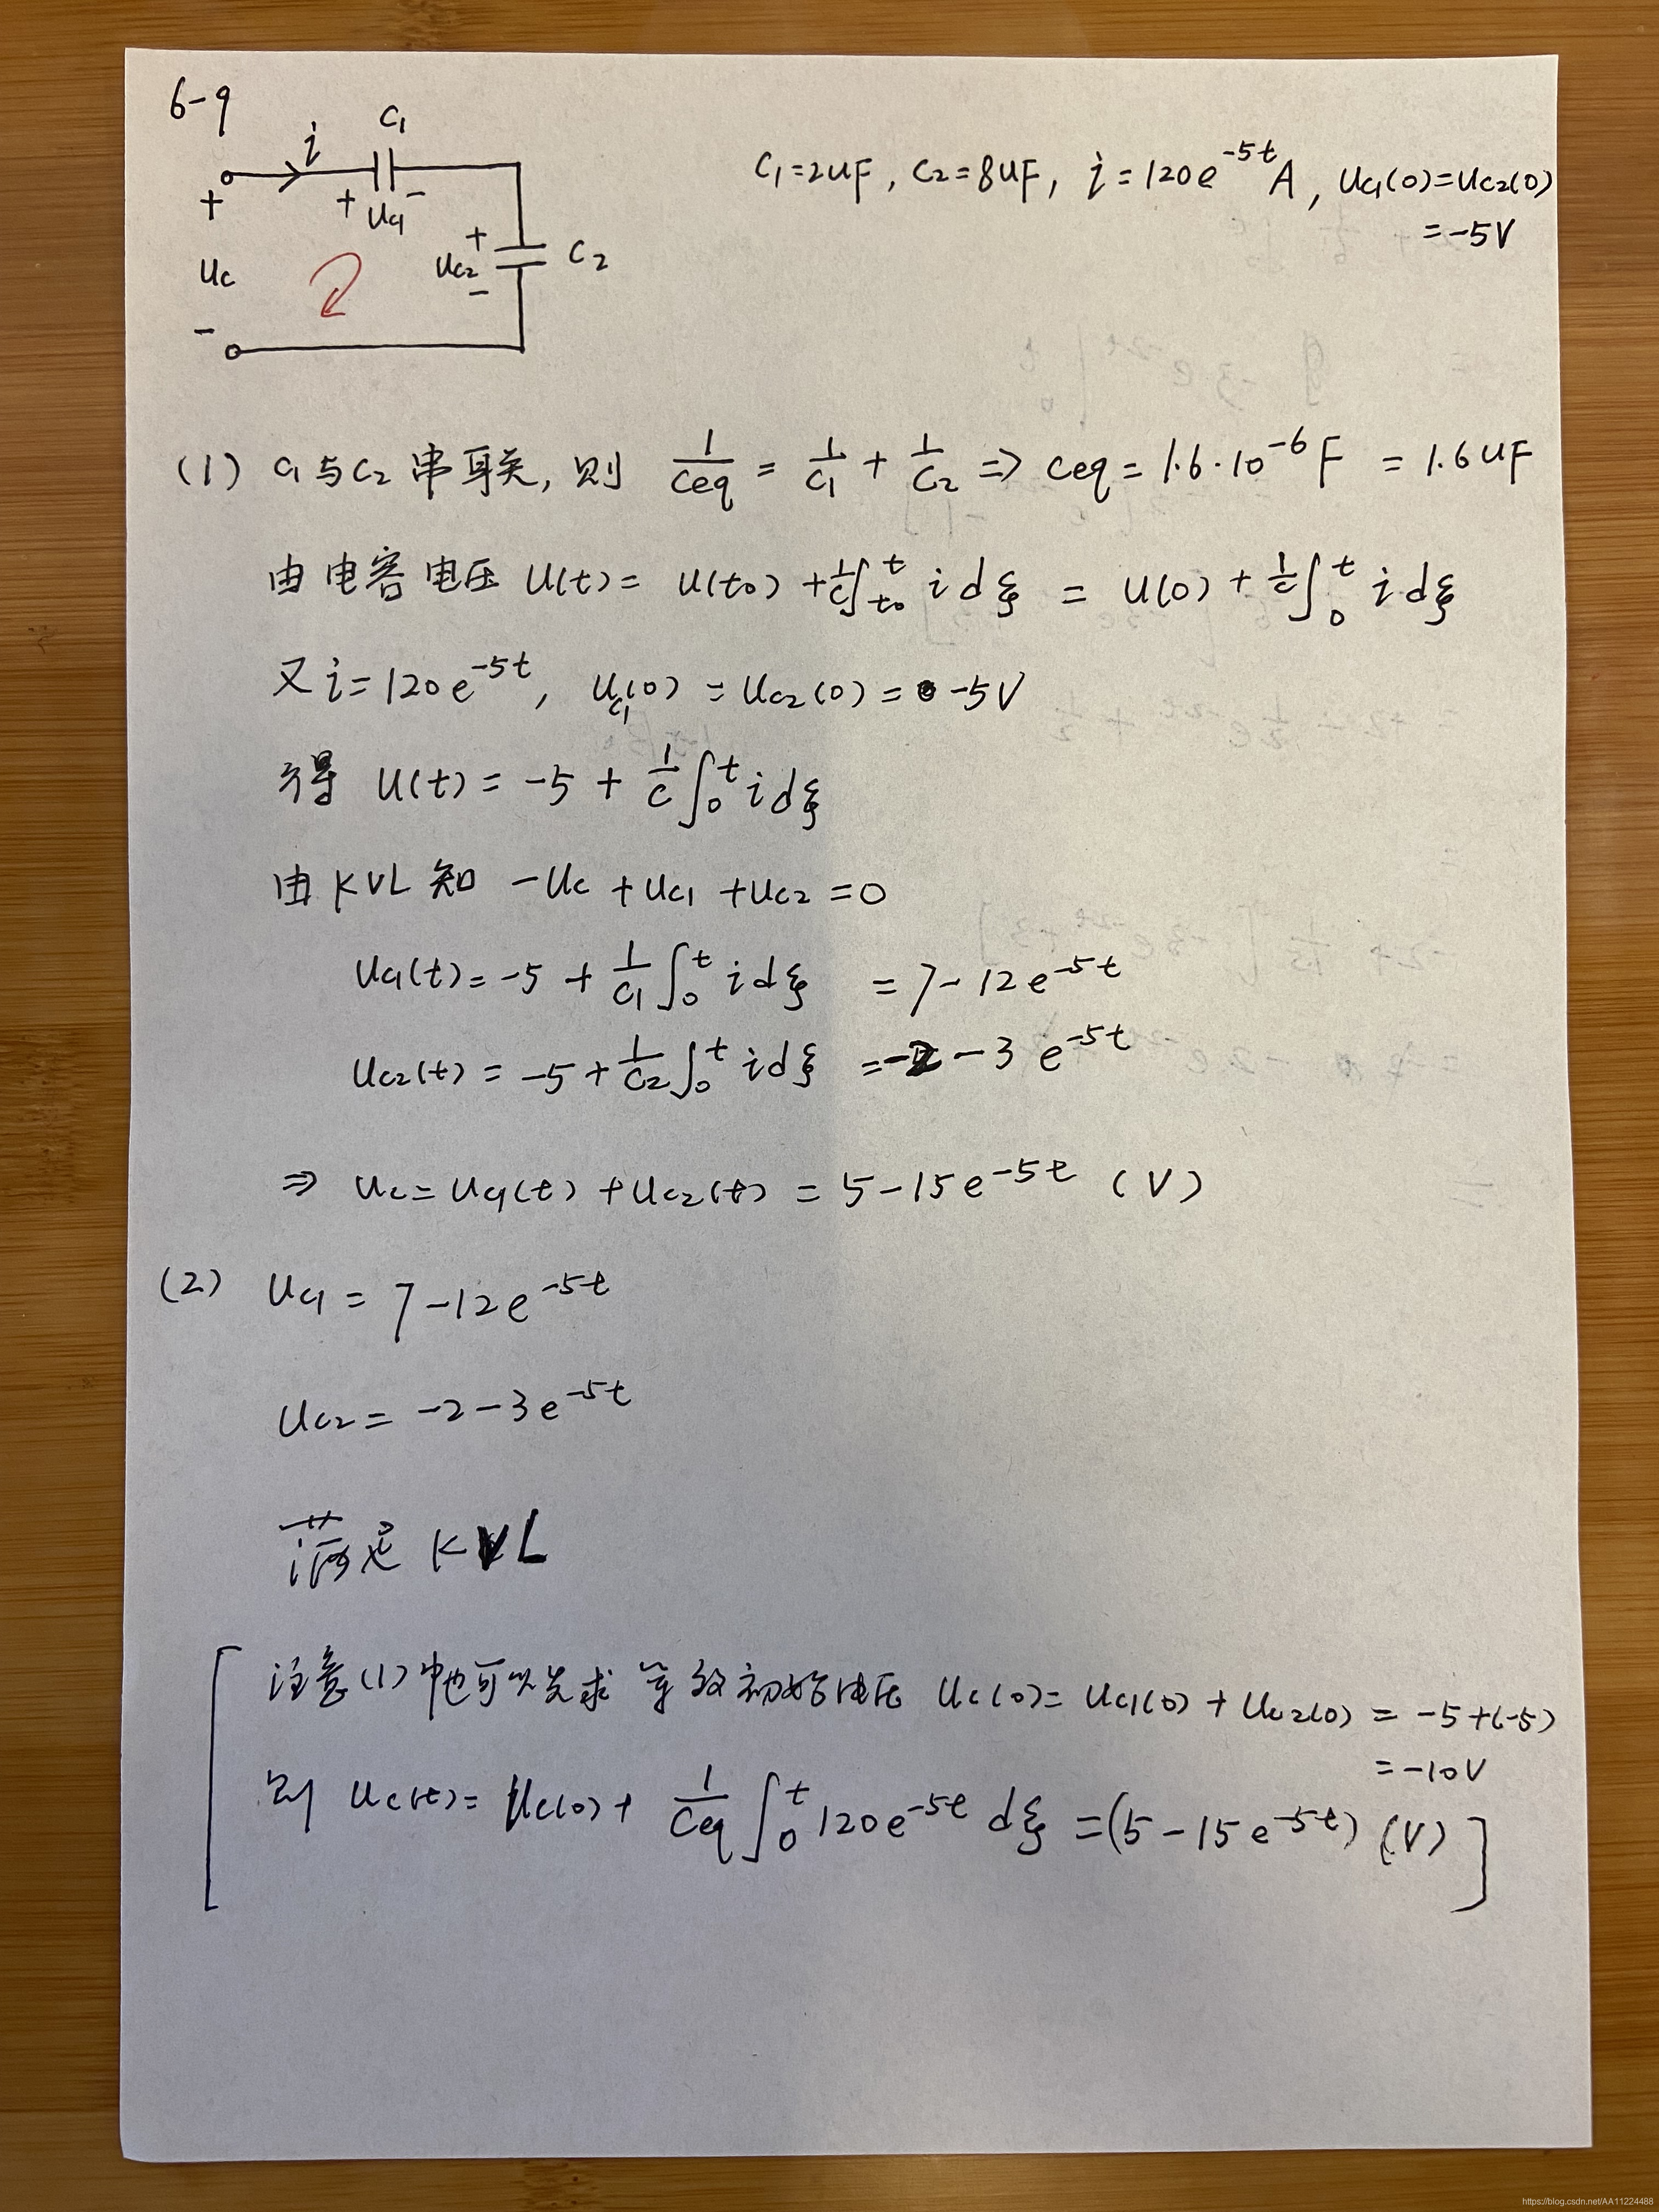 6-9
C₁
i
+ - 
+ uc₁
uc
+
uc₂
-
C₂
-
C₁=2uF, C₂=8uF, i=120e^{-5t}A, uc₁(0)=uc₂(0)
=-5V
(1) C₁与C₂串联,则 1/Ceq = 1/C₁ + 1/C₂ ⇒ Ceq = 1.6·10^{-6}F = 1.6uF
由电容电压 u(t)= u(t₀) + 1/C ∫_{t₀}^{t} i dξ = u(0) + 1/C ∫_{0}^{t} i dξ
又 i=120e^{-5t}, uc₁(0) = uc₂(0) = -5V
得 u(t) = -5 + 1/C ∫_{0}^{t} i dξ
由KVL知 -uc + uc₁ + uc₂ = 0
uc₁(t)= -5 + 1/C₁ ∫_{0}^{t} i dξ = 7-12e^{-5t}
uc₂(t) = -5 + 1/C₂ ∫_{0}^{t} i dξ = -2 - 3e^{-5t}
⇒ uc = uc₁(t) + uc₂(t) = 5-15e^{-5t} (V)
(2) uc₁ = 7-12e^{-5t}
uc₂ = -2-3e^{-5t}
满足 KVL
[注意(1)中也可以先求等效初始电压 uc(0) = uc₁(0) + uc₂(0) = -5+(-5)
=-10V
则 uc(t)= uc(0) + 1/Ceq ∫_{0}^{t} 120e^{-5t} dξ = (5-15e^{-5t}) (V)]
https://blog.csdn.net/AA11224488